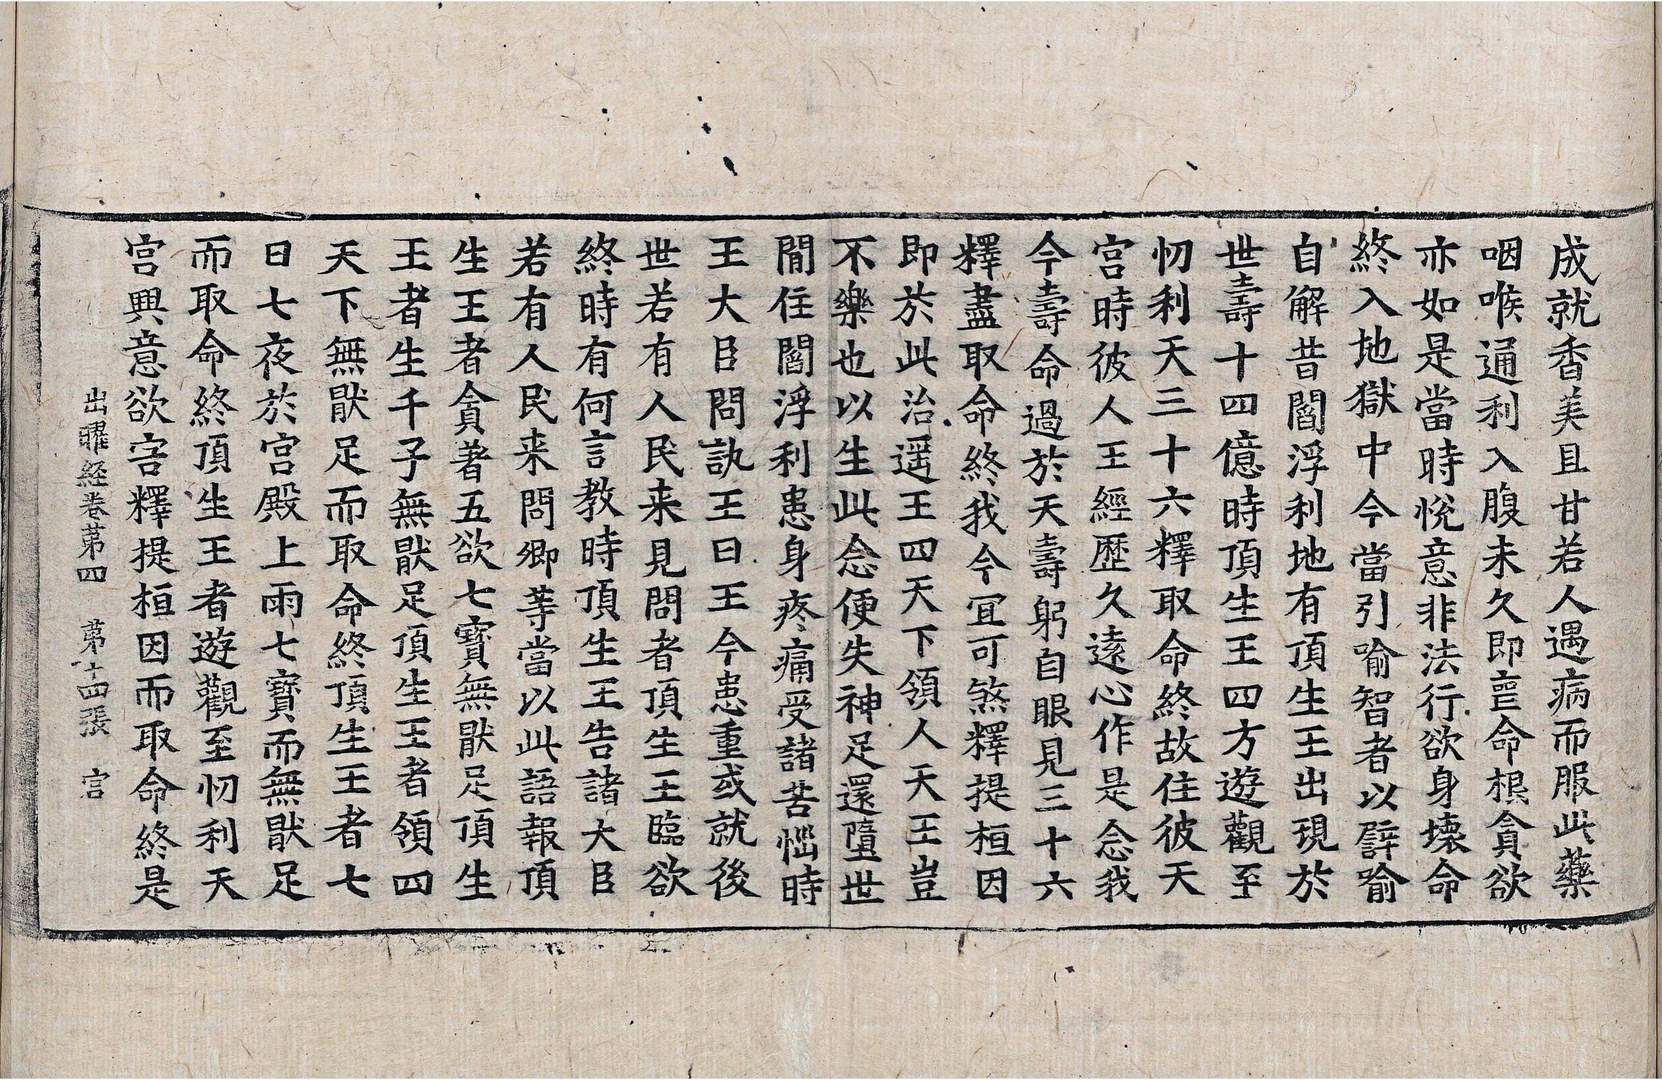 成就香美且甘若人遇病而服此藥
咽喉通利入腹未久即喪命根貪欲
亦如是當時悅意非法行欲身壞命
終入地獄中今當引喻智者以譬喻
自解昔閻浮利地有頂生王出現於
世壽十四億時頂生王四方遊觀至
忉利天三十六釋取命終故住彼天
宮時彼人王經歷久遠心作是念我
今壽命過於天壽躬自眼見三十六
釋盡取命終我今冝可煞釋提桓因
即於此治遥王四天下領人天王豈
不樂也以生此念便失神足還墮世
間住閻浮利患身疼痛受諸苦惱時
王大臣問訊王曰王今患重或就後
世若有人民来見問者頂生王臨欲
終時有何言教時頂生王告諸大臣
若有人民来問卿等當以此語報頂
生王者貪著五欲七寶無猒足頂生
王者生千子無猒足頂生王者領四
天下無猒足而取命終頂生王者七
日七夜於宮殿上雨七寶而無猒足
而取命終頂生王者遊觀至忉利天
宮興意欲害釋提桓因而取命終是
出曜経卷苐四　苐十四張　宫